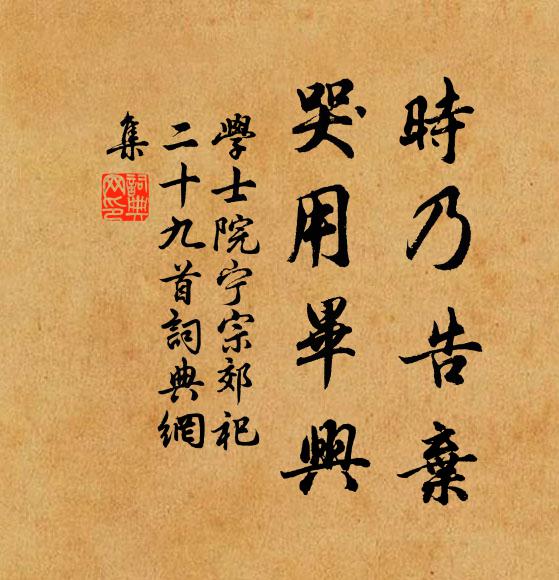 時乃告棄
哭用畢興
學士院宁宗郊祀
二十九首詞典網
集
詞典网印